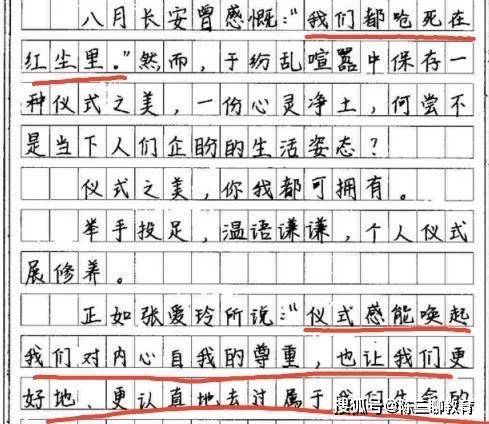 八月长安曾感慨：“我们都呛死在
红尘里。”然而，于纷乱喧嚣中保存一
种仪式之美，一份心灵净土，何尝不
是当下人们企盼的生活姿态？
仪式之美，你我都可拥有。
举手投足，温语谦谦，个人仪式
展修养。
正如张爱玲所说：“仪式感能唤起
我们对内心自我的尊重，也让我们更
好地、更认真地去过属于我们生命的
搜狐号@陈三聊教育